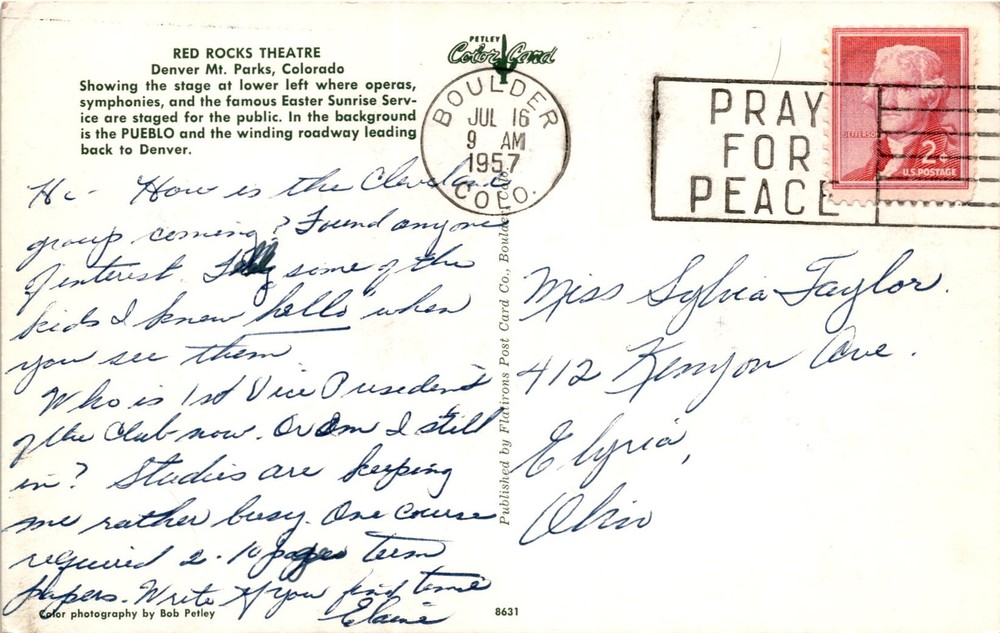 RED ROCKS THEATRE
Denver Mt. Parks, Colorado
Showing the stage at lower left where operas,
symphonies, and the famous Easter Sunrise Serv-
ice are staged for the public. In the background
is the PUEBLO and the winding roadway leading
back to Denver.
PETLEY
Color Card
BOULDER
JUL 16
9 AM
1957
COLO.
PRAY
FOR
PEACE
JEFFERSON
2¢
U.S. POSTAGE
Hi - How is the Cleveland
group coming? Found anyone
of interest. Tell some of the
kids I knew "hello" when
you see them.
Who is 1st Vice President
of the Club now. Or am I still
in? Studies are keeping
me rather busy. One course
required 2 - 10 pages term
papers. Write if you find time
Elaine
Published by Flatirons Post Card Co., Boulder, Colo.
Miss Sylvia Taylor.
412 Kenyon Ave.
Elyria,
Ohio
Color photography by Bob Petley
8631